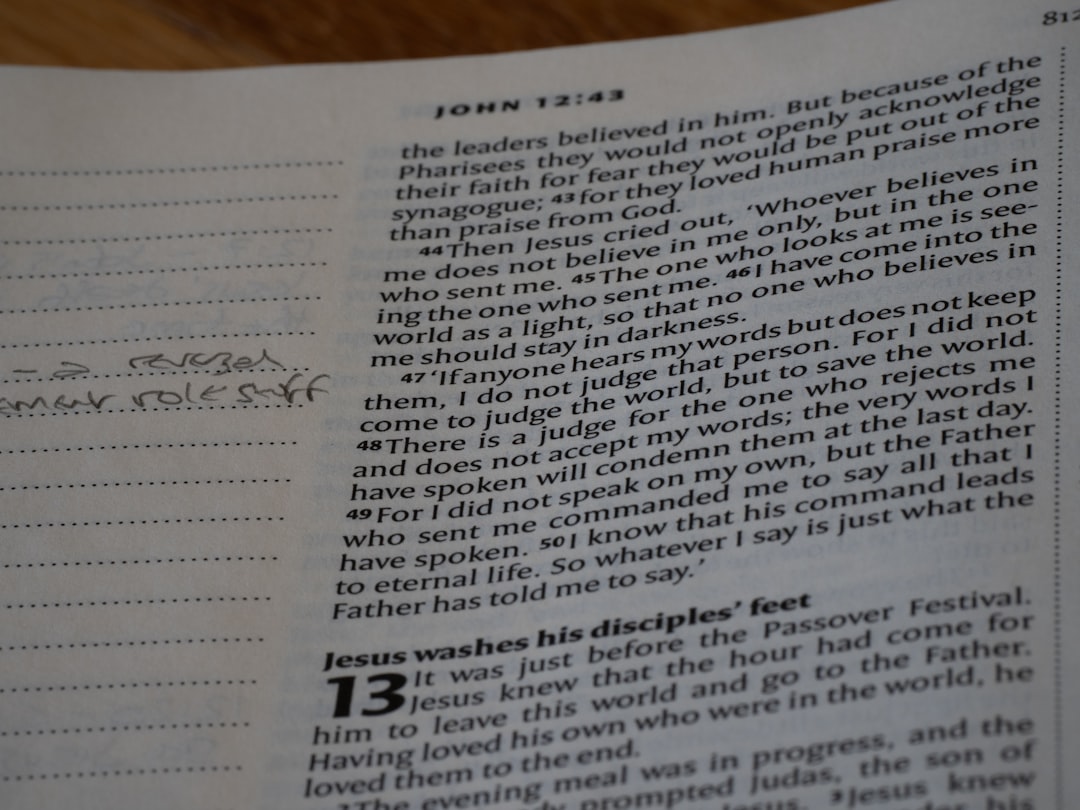 812
JOHN 12:43
the leaders believed in him. But because of the
Pharisees they would not openly acknowledge
their faith for fear they would be put out of the
synagogue; 43 for they loved human praise more
than praise from God.
44 Then Jesus cried out, ‘Whoever believes in
me does not believe in me only, but in the one
who sent me. 45 The one who looks at me is see-
ing the one who sent me. 46 I have come into the
world as a light, so that no one who believes in
me should stay in darkness.
47 ‘If anyone hears my words but does not keep
them, I do not judge that person. For I did not
come to judge the world, but to save the world.
48 There is a judge for the one who rejects me
and does not accept my words; the very words I
have spoken will condemn them at the last day.
49 For I did not speak on my own, but the Father
who sent me commanded me to say all that I
have spoken. 50 I know that his command leads
to eternal life. So whatever I say is just what the
Father has told me to say.’
Jesus washes his disciples’ feet
13 It was just before the Passover Festival.
Jesus knew that the hour had come for
him to leave this world and go to the Father.
Having loved his own who were in the world, he
loved them to the end.
2 The evening meal was in progress, and the
prompted Judas, the son of
Jesus. 3 Jesus knew
role stuff